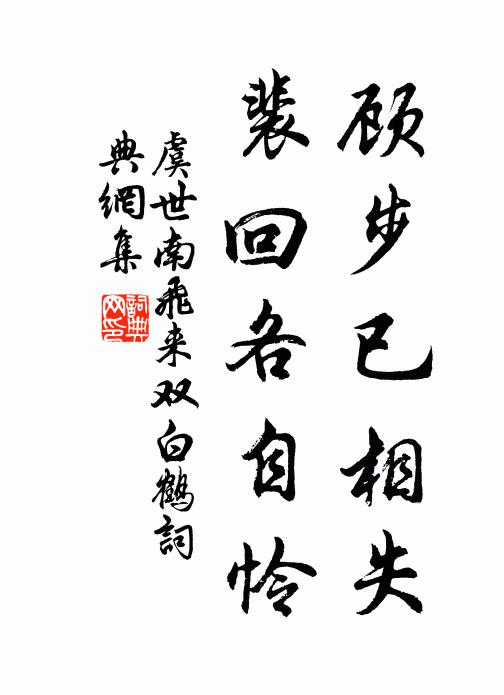 顾步已相失
裴回各自怜
虞世南飛来双白鶴詞
典網集
詞典
网印